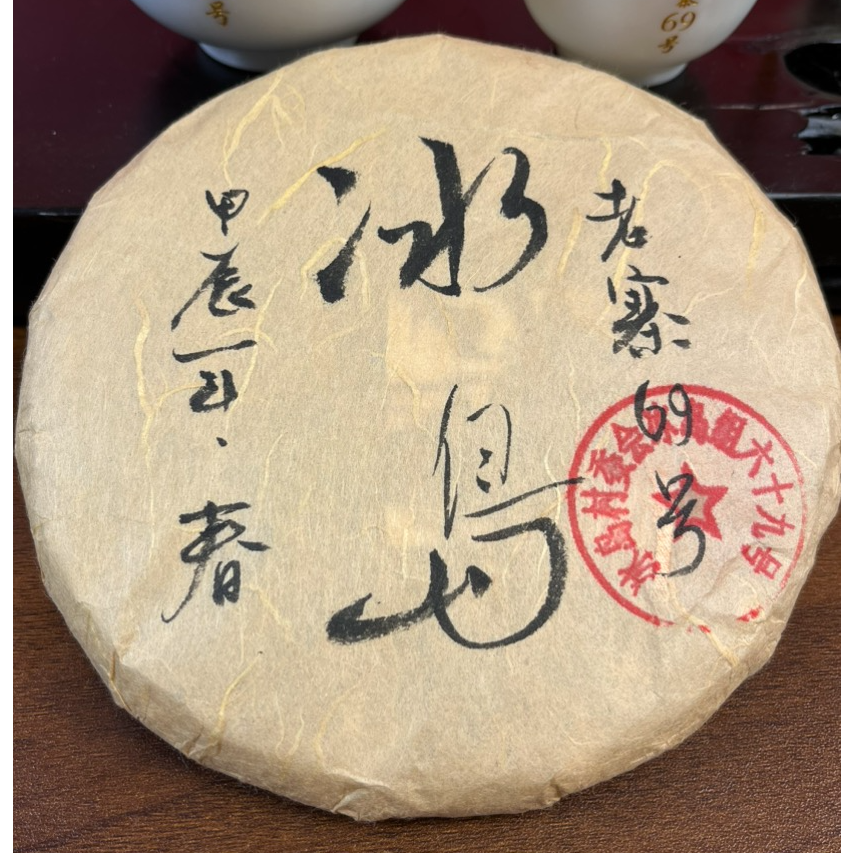 号
69
号
老寨69号
冰島
甲辰年、春
冰岛村委会冰岛组六十九号